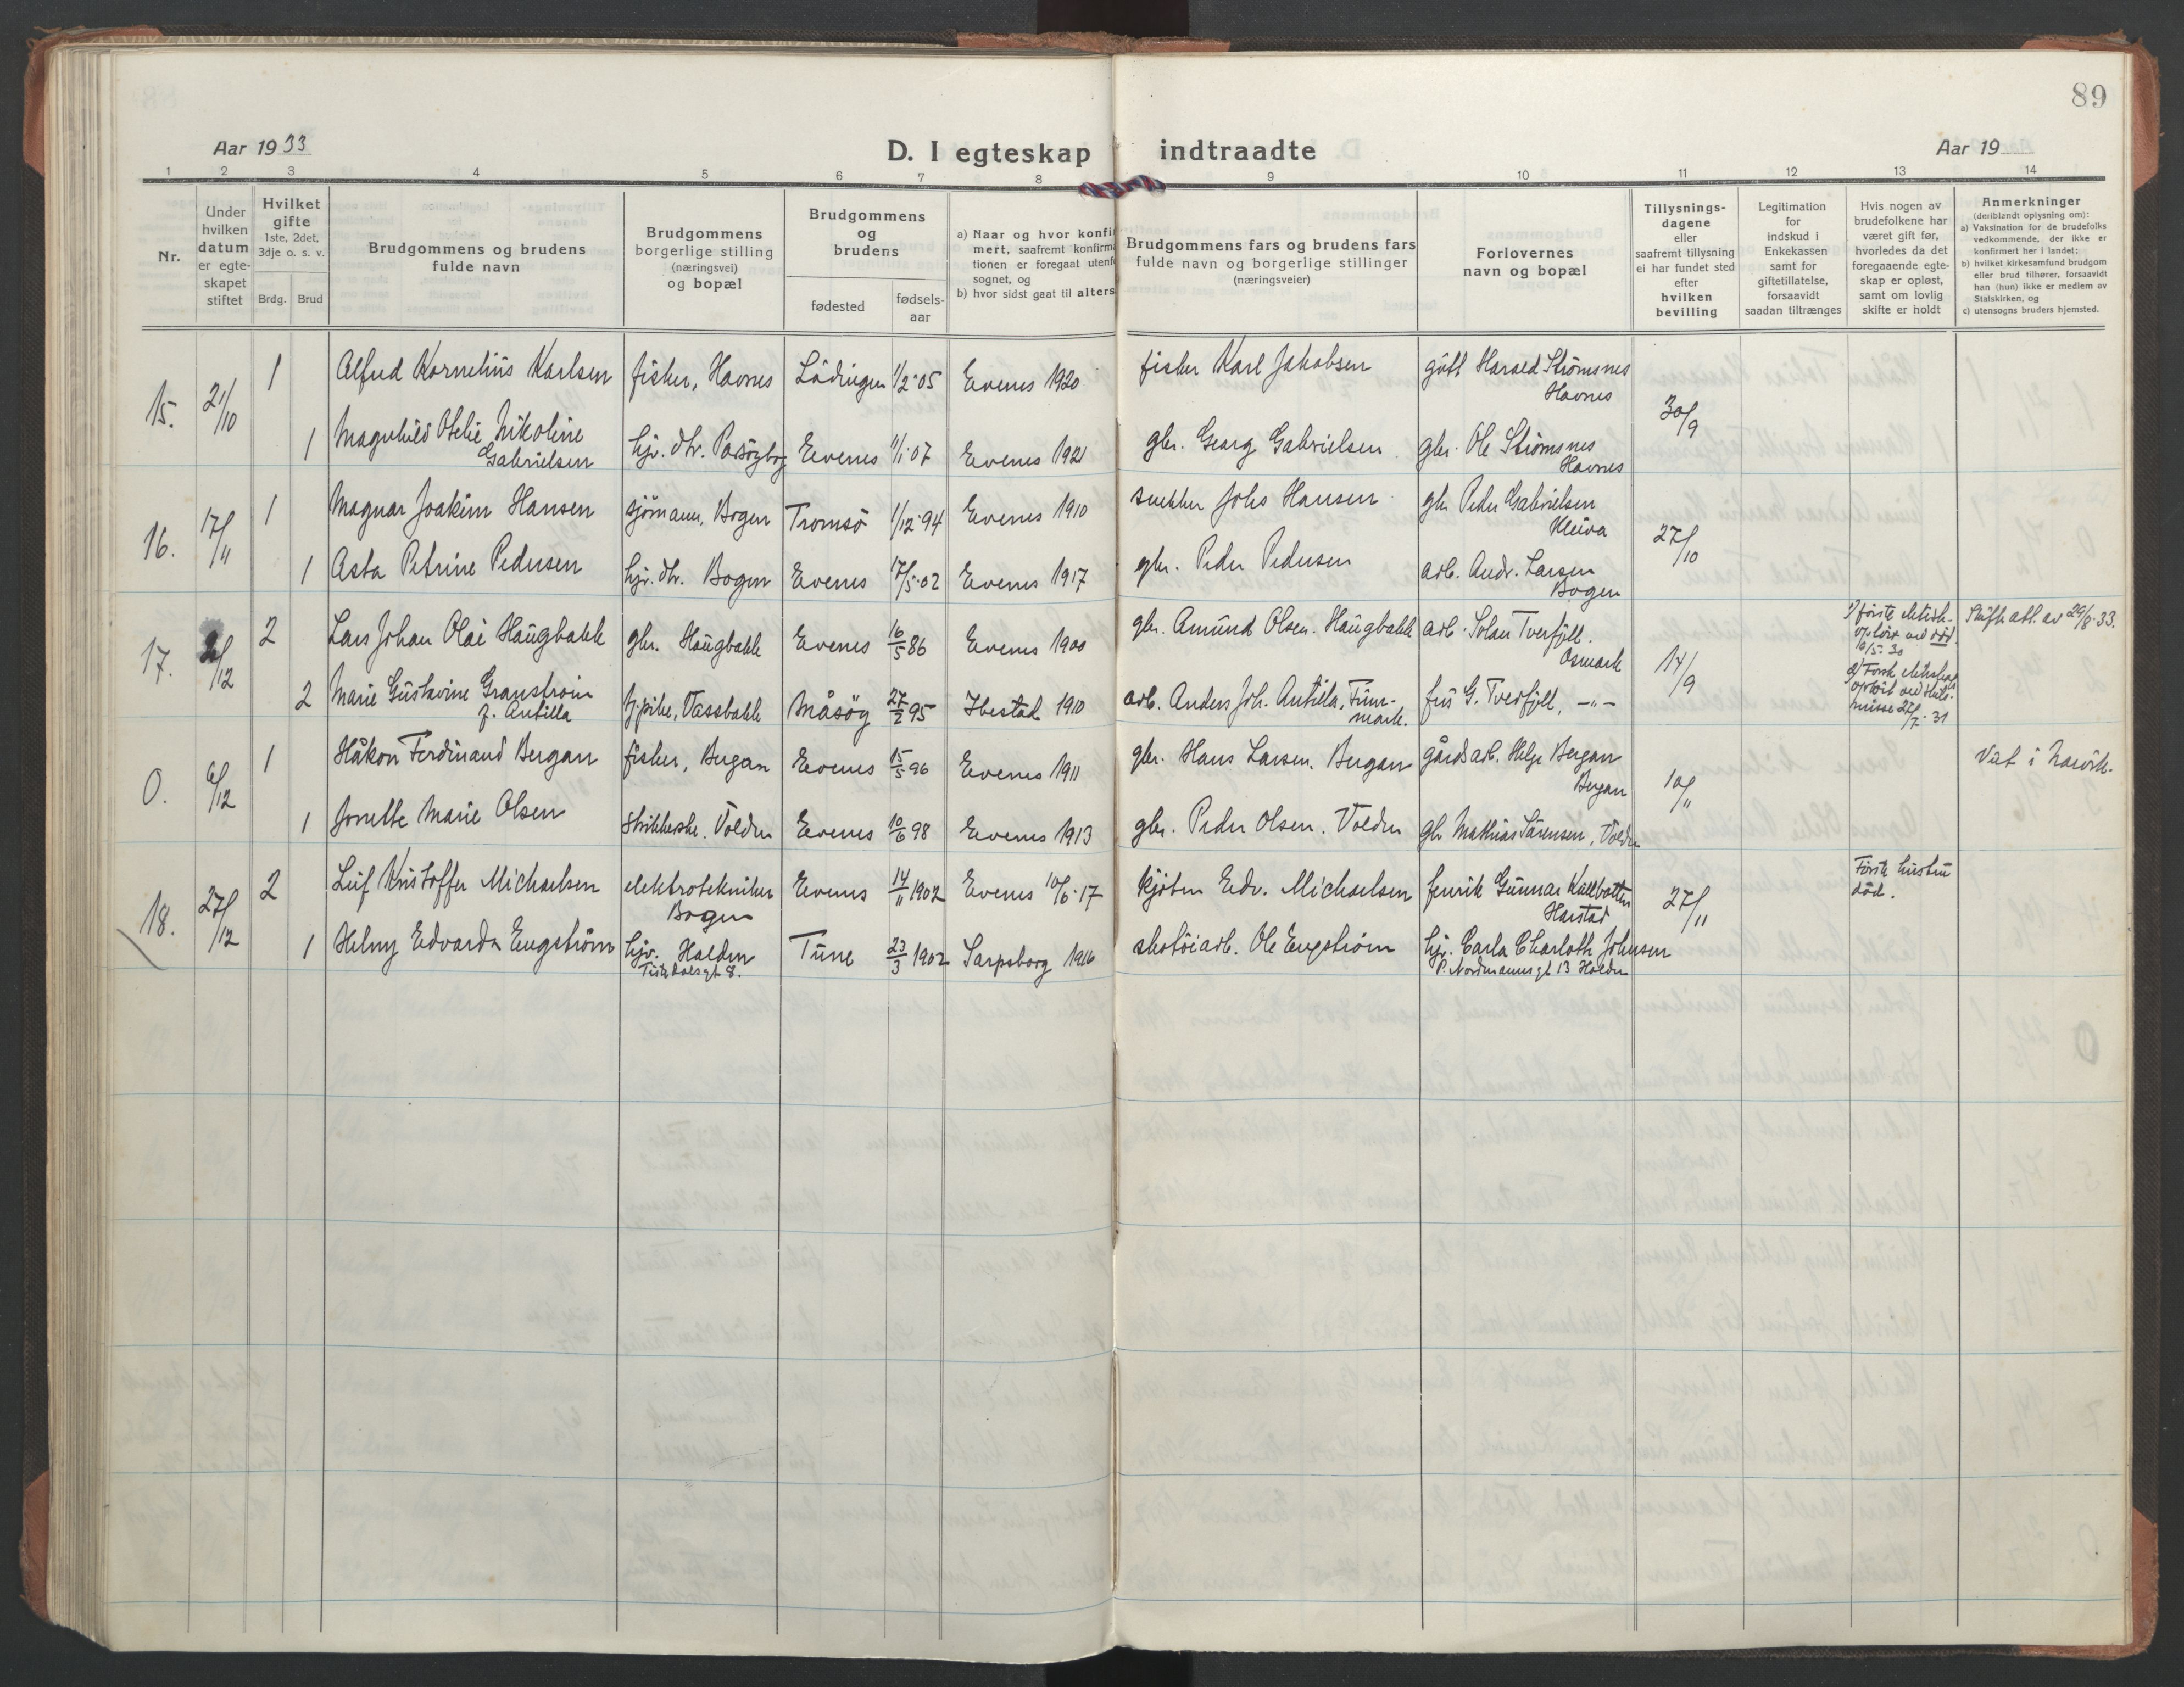 89
Aar 1933
D. I egteskap indtraadte
Aar 19
1 2 3 4 5 6 7 8 9 10 11 12 13 14
Nr.
Under hvilken datum er egte-skapet stiftet
Hvilket gifte
1ste, 2det, 3dje o. s. v.
Brdg. Brud
Brudgommens og brudens
fulde navn
Brudgommens
borgerlige stilling
(næringsvei)
og bopæl
Brudgommens
og
brudens
fødested
fødsels-
aar
a) Naar og hvor konfir
mert, saafremt konfirma
tionen er foregaat utenfo
sognet, og
b) hvor sidst gaat til alters
Brudgommens fars og brudens fars
fulde navn og borgerlige stillinger
(næringsveier)
Forlovernes
navn og bopæl
Tillysnings-
dagene
eller
saafremt tillysning
ei har fundet sted
efter
hvilken
bevilling
Legitimation
for
indskud i
Enkekassen
samt for
giftetillatelse,
forsaavidt
saadan tiltrænges
Hvis nogen av
brudefolkene har
været gift før,
hvorledes da det
foregaaende egte-
skap er opløst,
samt om lovlig
skifte er holdt
Anmerkninger
(deriblandt oplysning om):
a) Vaksination for de brudefolks
vedkommende, der ikke er
konfirmert her i landet;
b) hvilket kirkesamfund brudgom
eller brud tilhører, forsaavidt
han (hun) ikke er medlem av
Statskirken, og
c) utensogns bruders hjemsted.
15. 21/10 1 Alfred Kornelius Karlsen fisker, Havnes Lödingen 1/2·05 Evenes 1920 fisker Karl Jakobsen Harald Strömsnes
Havnes
30/9
1 Magnhild Otelie Nikoline
Gabrielsen hjv. dtr. Evenes 11/1·07 Evenes 1921 gbr. Georg Gabrielsen gbr. Ole Strömsnes
Havnes
16. 17/11 1 Magnar Joakim Hansen sjömann, Bogen Tromsö 1/12·94 Evenes 1910 snekker Johs Hansen gbr Peder Gabrielsen
Kleiva
27/10
1 Asta Petrine Pedersen hjv. dtr. Bogen Evenes 17/5·02 Evenes 1917 gbr. Peder Pedersen arb. Andr. Larsen
Bogen
17. 2/12 2 Lars Johan Olai Haugbakk gbr. Haugbakk Evenes 16/5 86 Evenes 1900 gbr. Amund Olsen. Haugbakk arb. Johan Tverfjell.
Osmark
14/9
1) første ektesk.
oplöst ved död
10/5·30
Skifte att. av 29/8·33.
2 Marie Gustavine Granström
f. Antilla tj.pike, Vassbakk Måsöy 27/2 95 Ibestad 1910 arb. Anders Joh. Antilla, Finn-
mark. fru G. Tverfjell, -"-
2) Første ekteskap
oplöst ved skils-
misse 27/7·31
0. 6/12 1 Håkon Ferdinand Bergan fisker, Bergan Evenes 15/5 96 Evenes 1911 gbr. Hans Larsen. Bergan gårdsarb. Helge Bergan
Bergan
10/11
Viet i Narvik.
1 Jonette Marie Olsen strikkerske. Volden Evenes 10/6 98 Evenes 1913 gbr. Peder Olsen. Volden gbr Mathias Sörensen, Volden
18. 27/12 2 Leif Kristoffer Michaelsen elektrotekniker
Bogen Evenes 14/11 1902 Evenes 10/6·17 kjöbm Edv. Michaelsen fenrik Gunnar Kallbotten
Harstad
27/11
Første hustru
död.
1 Helny Edvarda Engström hjv. Halden
Tistedalsgt 8. Tune 23/3 1902 Sarpsborg 1916 skotöiarb. Ole Engström hjv. Carla Charloth Johnsen
P. Nordmannsgt 13 Halden